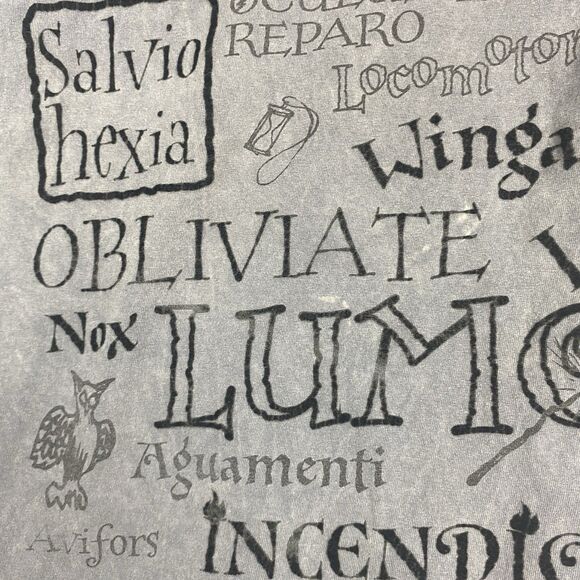 OCULUS
REPARO
Salvio
hexia
Locomotor
Winga
OBLIVIATE
Nox
LUMO
Aguamenti
Avifors
INCENDIO